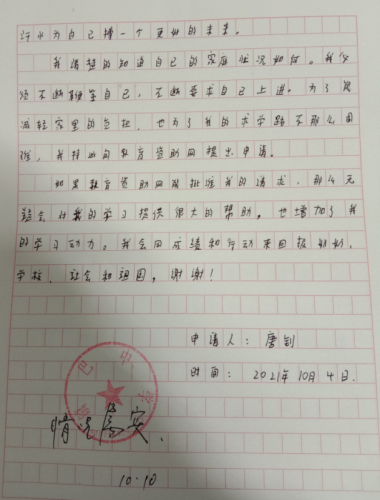 为自己搏一个更好的未来。
我清楚的知道自己的家庭状况如何。我必
须不断鞭策自己，不断要求自己上进。为了能
减轻家里的负担，也为了我的求学路不那么困
难，我特此向教育资助网提出申请。
如果教育资助网成批准我的请求，那么无
疑会让我的学习提供很大的帮助，也增加了我
的学习动力。我会回成绩和行动来回报
学校、社会和祖国，谢谢！
申请人：唐钊
时间：2021年10月4日.
情况属实.
10.10